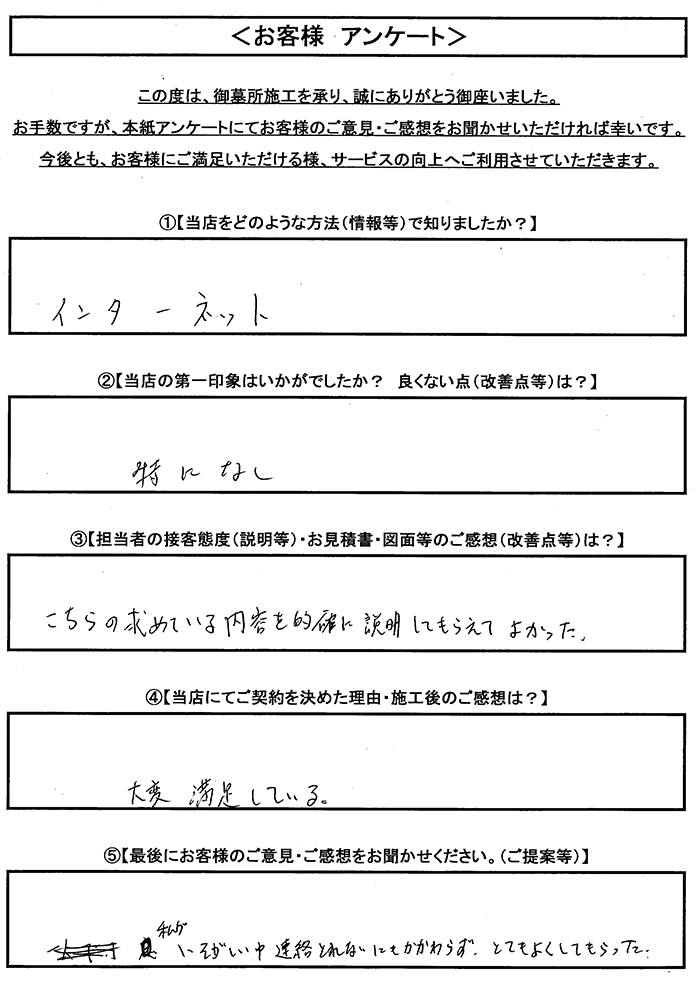 ＜お客様　アンケート＞
この度は、御墓所施工を承り、誠にありがとう御座いました。
お手数ですが、本紙アンケートにてお客様のご意見・ご感想をお聞かせいただければ幸いです。
今後とも、お客様にご満足いただける様、サービスの向上へご利用させていただきます。
①【当店をどのような方法（情報等）で知りましたか？】
インターネット
②【当店の第一印象はいかがでしたか？　良くない点（改善点等）は？】
特になし
③【担当者の接客態度（説明等）・お見積書・図面等のご感想（改善点等）は？】
こちらの求めている内容を的確に説明してもらえてよかった。
④【当店にてご契約を決めた理由・施工後のご感想は？】
大変満足している。
⑤【最後にお客様のご意見・ご感想をお聞かせください。（ご提案等）】
私が
いそがい中連絡とれないにもかかわらず、とてもよくしてもらった。